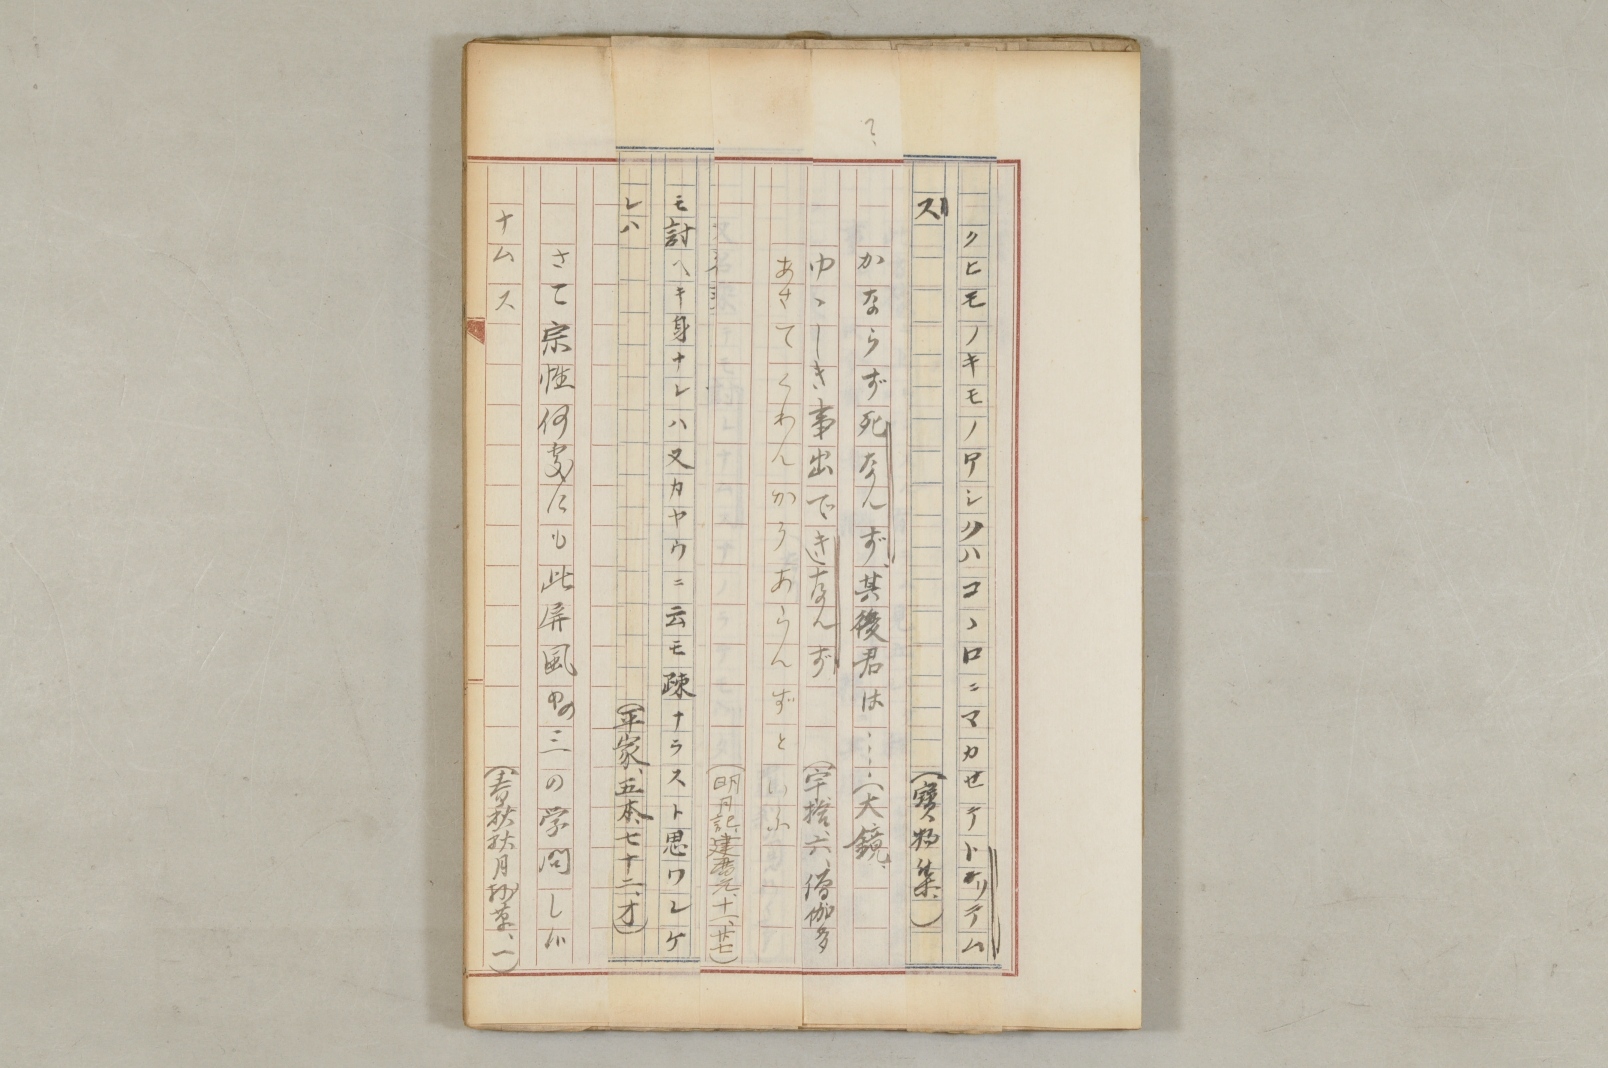 クヒモノキモノアシクハコヽロニマカせテトリテム
ズ　(寶物集、)
かならず死なんず、其後君は……(大鏡、
ゆヽしき事出できなんず　(宇拾六、僧伽多
あさてくわんかうあらんずと
(明月記、建暦元、十一、廿七)
モ討ヘキ身ナレハ又カヤウニ云モ疎ナラスト思ワレケ
レハ　(平家、五本、七十二、オ)
さて宗性何処にも此屏風中の三の学問しが
ナムス　(春秋秋月抄草、一)